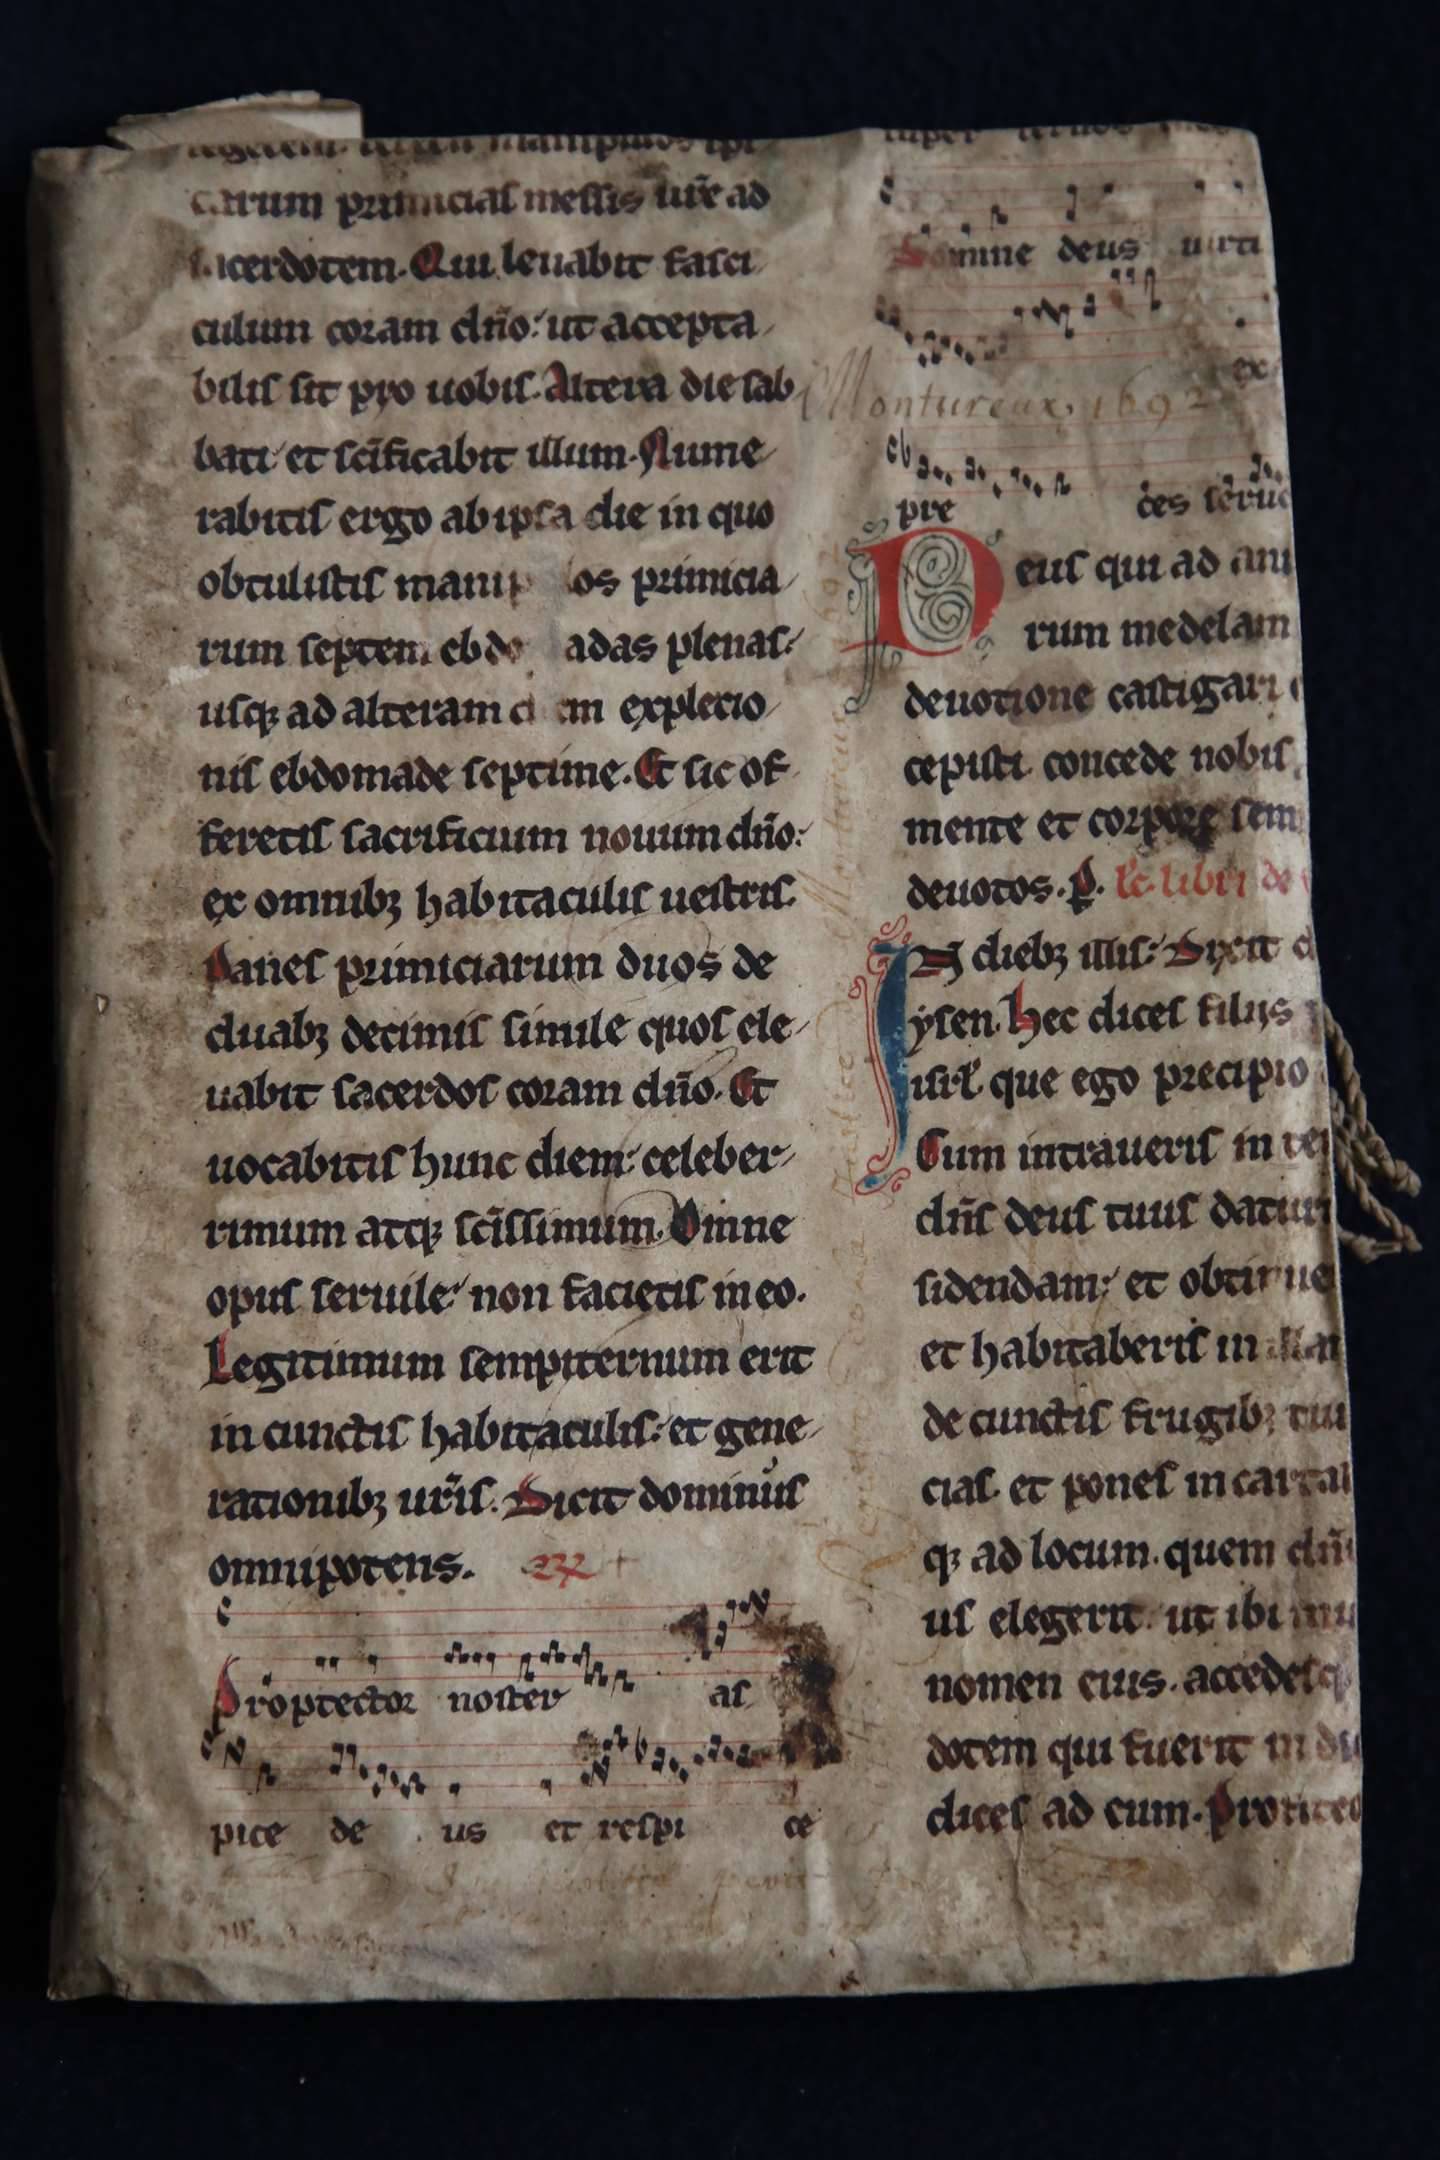 carum primicias messis ur̄e ad
sacerdotem. Qui leuabit fasci
culum coram dn̄o: ut accepta
bilis sit pro uobis. Altera die sab
bati et sc̄ificabit illum. Nume
rabitis ergo ab ipsa die in quo
obtulistis manip os primicia
rum septem ebdo adas plenas:
usq; ad alteram d em expletio
nis ebdomade septime. Et sic of
feretis sacrificium nouum dn̄o:
ex omnib; habitaculis uestris.
Panes primiciarum duos de
duab; decimis simile quos ele
uabit sacerdos coram dn̄o. Et
uocabitis hunc diem celeber
rimum atq; sc̄issimum. Omne
opus seruile non facietis in eo.
Legitimum sempiternum erit
in cunctis habitaculis: et gene
rationib; ur̄is. Dicit dominus
omnipotens.
Proptector noster as
pice de us et respi ce
Domine deus uirtu
ex
Montureux 1692
pre ces serue
Deus qui ad ani
rum medelam
deuotione castigari
cepisti concede nobis
mente et corpore sem
deuotos. P. Lc̄. libri
In dieb; illis: Dixit
ysen. Hec dices filiis
isrl̄. que ego precipio
Cum intraueris in ter
dn̄s deus tuus datur
sidendam: et obtinue
et habitaberis in illa
de cunctis frugib; tui
cias et pones in cartal
q; ad locum. quem dn̄s
us elegerit ut ibi inu
nomen eius. accedesq;
dotem qui fuerit in
dices ad eum. Profiteo